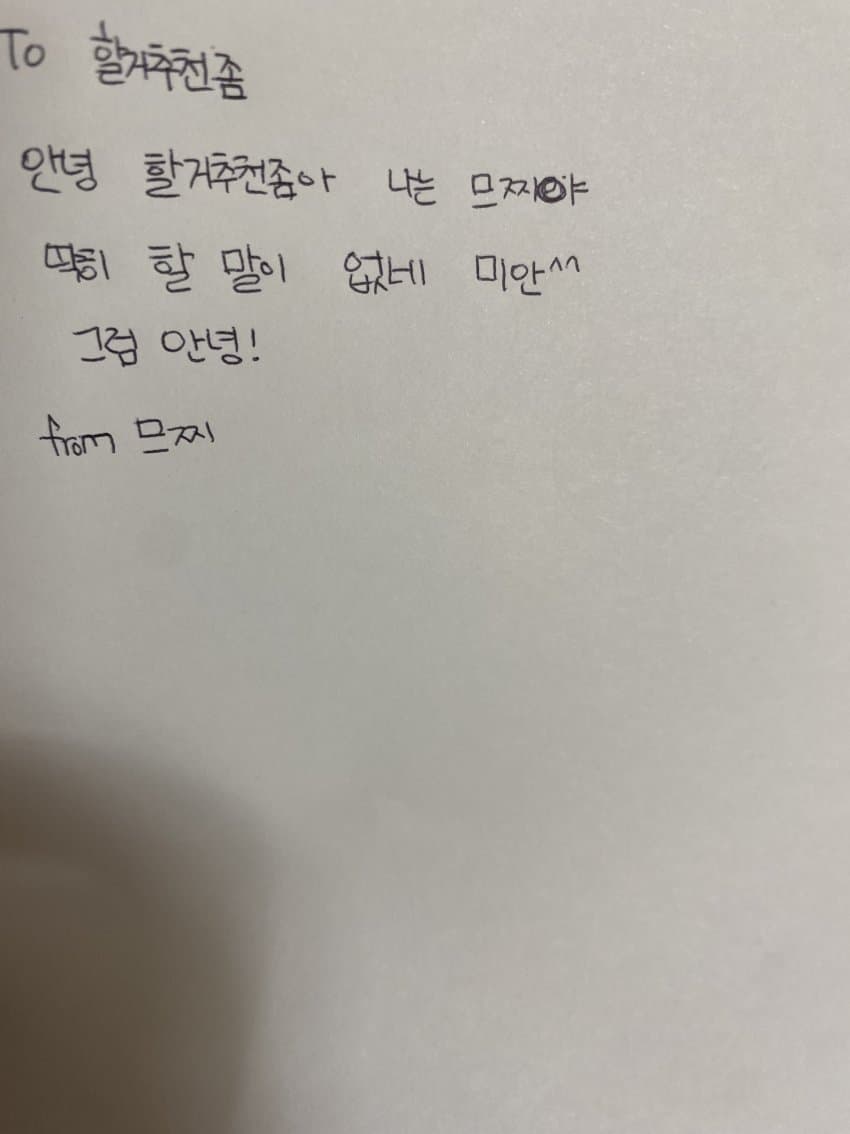 To 할거추천좀
안녕 할거추천좀아 나는 므찌야
딱히 할 말이 없네 미안^^
그럼 안녕!
from 므찌